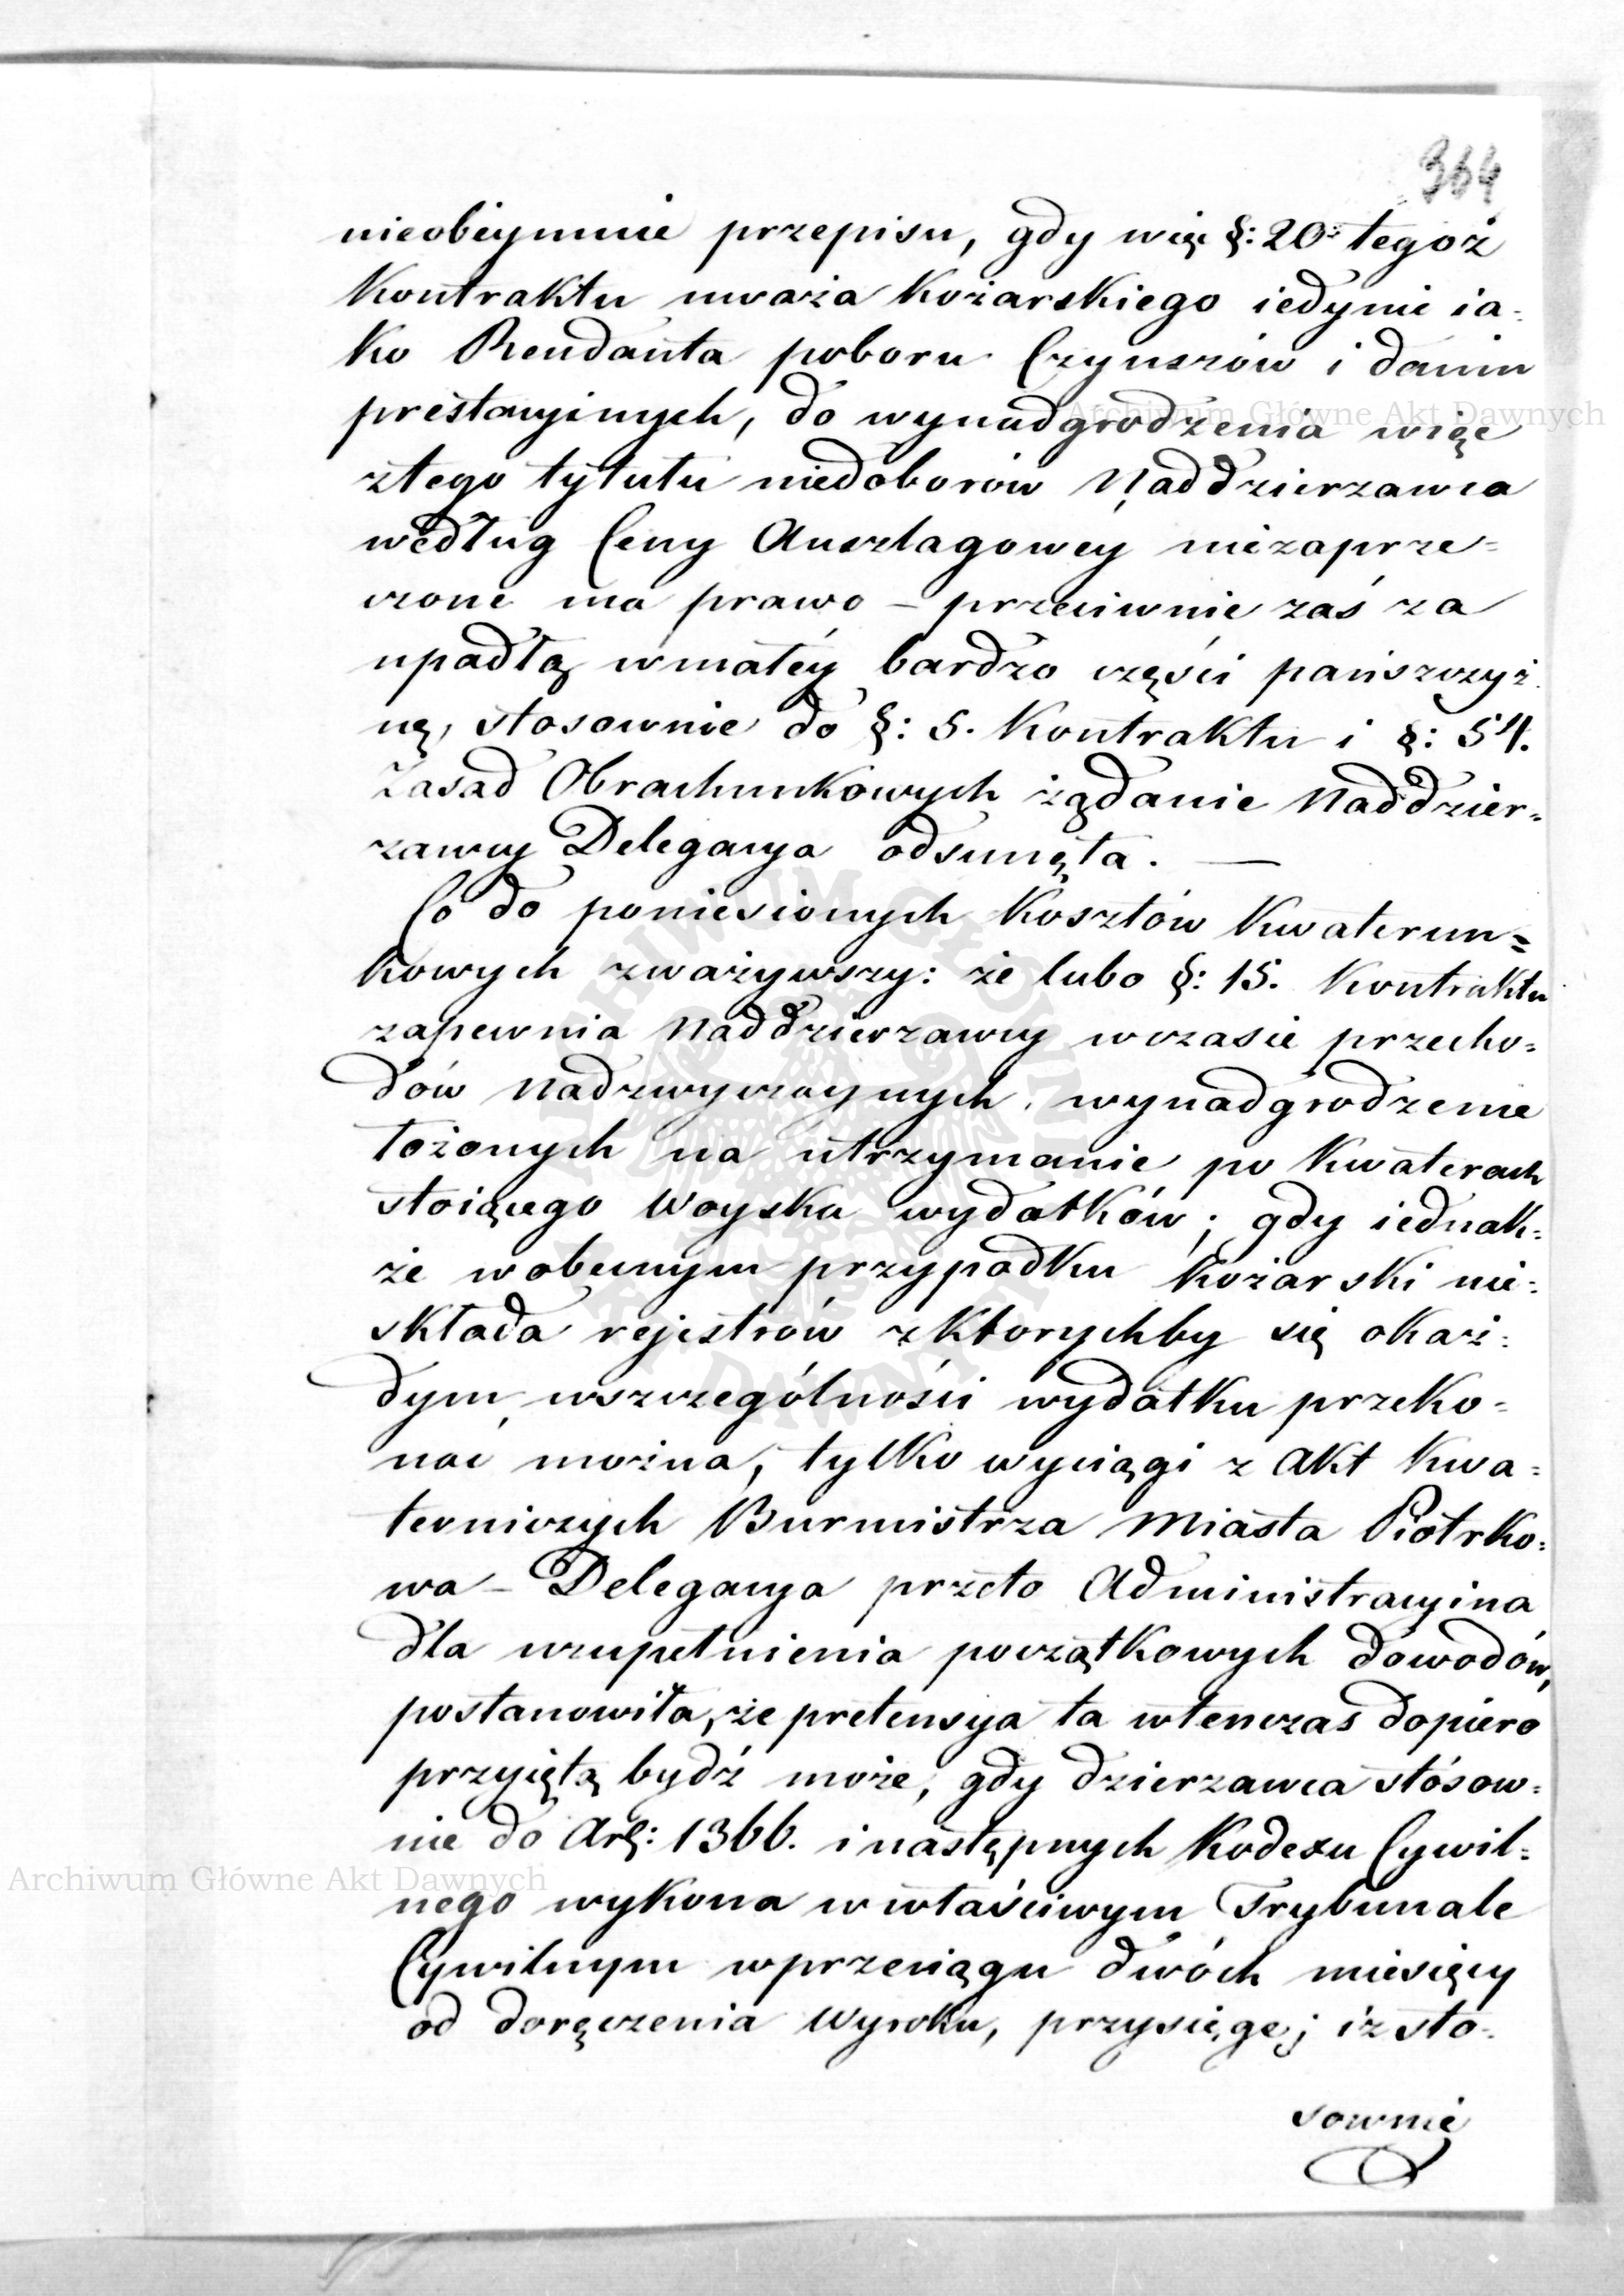 364
nieobeymuie przepisu, gdy więc §: 20: tegoż
Kontraktu uważa Kożarskiego iedynie ia-
ko Rendanta poboru Czynszów i danin
prestacyinych, do wynadgrodzenia więc
ztego tytułu niedoborów Naddzierzawca
według Ceny Anszlagowey niezaprze=
czone ma prawo – przeciwnie zaś za
upadłą wmałéy bardzo części pańszczyz-
nę, stosownie do §: 5. Kontraktu i §: 54.
Zasad Obrachunkowych żądanie Naddzier-
zawcy Delegacya odsunęła. —
Co do poniesionych Kosztów Kwaterun=
kowych zważywszy: że lubo §: 15. Kontraktu
zapewnia Naddzierzawcy wczasie przecho=
dów nadzwyczaynych, wynadgrodzenie
łożonych na utrzymanie po Kwaterach
stoiącego Woyska wydatków; gdy iednak=
że wobecnym przypadku Kożarski nie=
składa rejestrów zktorychby się okaż=
dym wszczególności wydatku przeko=
nać można, tylko wyciągi z Akt Kwa=
terniczych Burmistrza Miasta Piotrko=
wa – Delegacya przeto Administracyina
dla uzupełnienia początkowych dowodów,
postanowiła, że pretensya ta wtenczas dopiero
przyiętą bydź może, gdy dzierzawca stósow=
nie do Art: 1366. i następnych Kodexu Cywil=
nego wykona wwłaściwym Trybunale
Cywilnym wprzeciągu dwóch miesięcy
od doręczenia Wyroku, przysięgę; iż sto-
sownie
Archiwum Główne Akt Dawnych
Archiwum Główne Akt Dawnych
ARCHIWUM GŁÓWNE AKT DAWNYCH